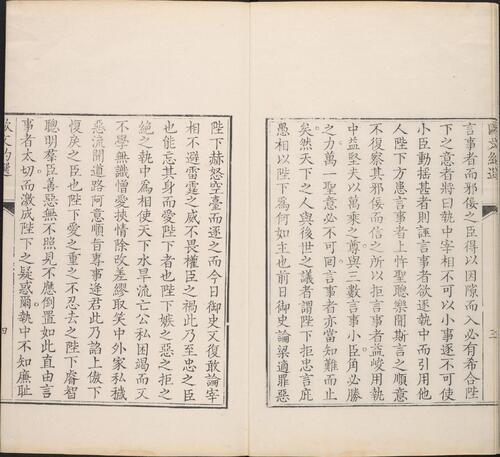 言事者而邪佞之臣得以因隙而入必有希合陛
下之意者將曰執中宰相不可以小事逐不可使
小臣動搖甚者則誣言事者欲逐執中而引用他
人陛下方患言事者上忤聖聰樂聞斯言之順意
不復察其邪佞而信之所以拒言事者益峻用執
中益堅夫以萬乘之尊與三數言事小臣角必勝
之力萬一聖意必不可回言事者亦當知難而止
矣然天下之人與後世之議者謂陛下拒忠言庇
愚相以陛下為何如主也前日御史論梁適罪惡
三
陛下赫怒空臺而逐之而今日御史又復敢論宰
相不避雷霆之威不畏權臣之禍此乃至忠之臣
也能忘其身而愛陛下者也陛下嫉之惡之拒之
絶之執中為相使天下水旱流亡公私困竭而又
不學無識憎愛挾情除改差繆取笑中外家私穢
惡流聞道路阿意順旨專事逢君此乃諂上傲下
愎戾之臣也陛下愛之重之不忍去之陛下睿智
聰明羣臣善惡無不照見不應倒置如此直由言
事者太切而激成陛下之疑惑爾執中不知廉恥
四